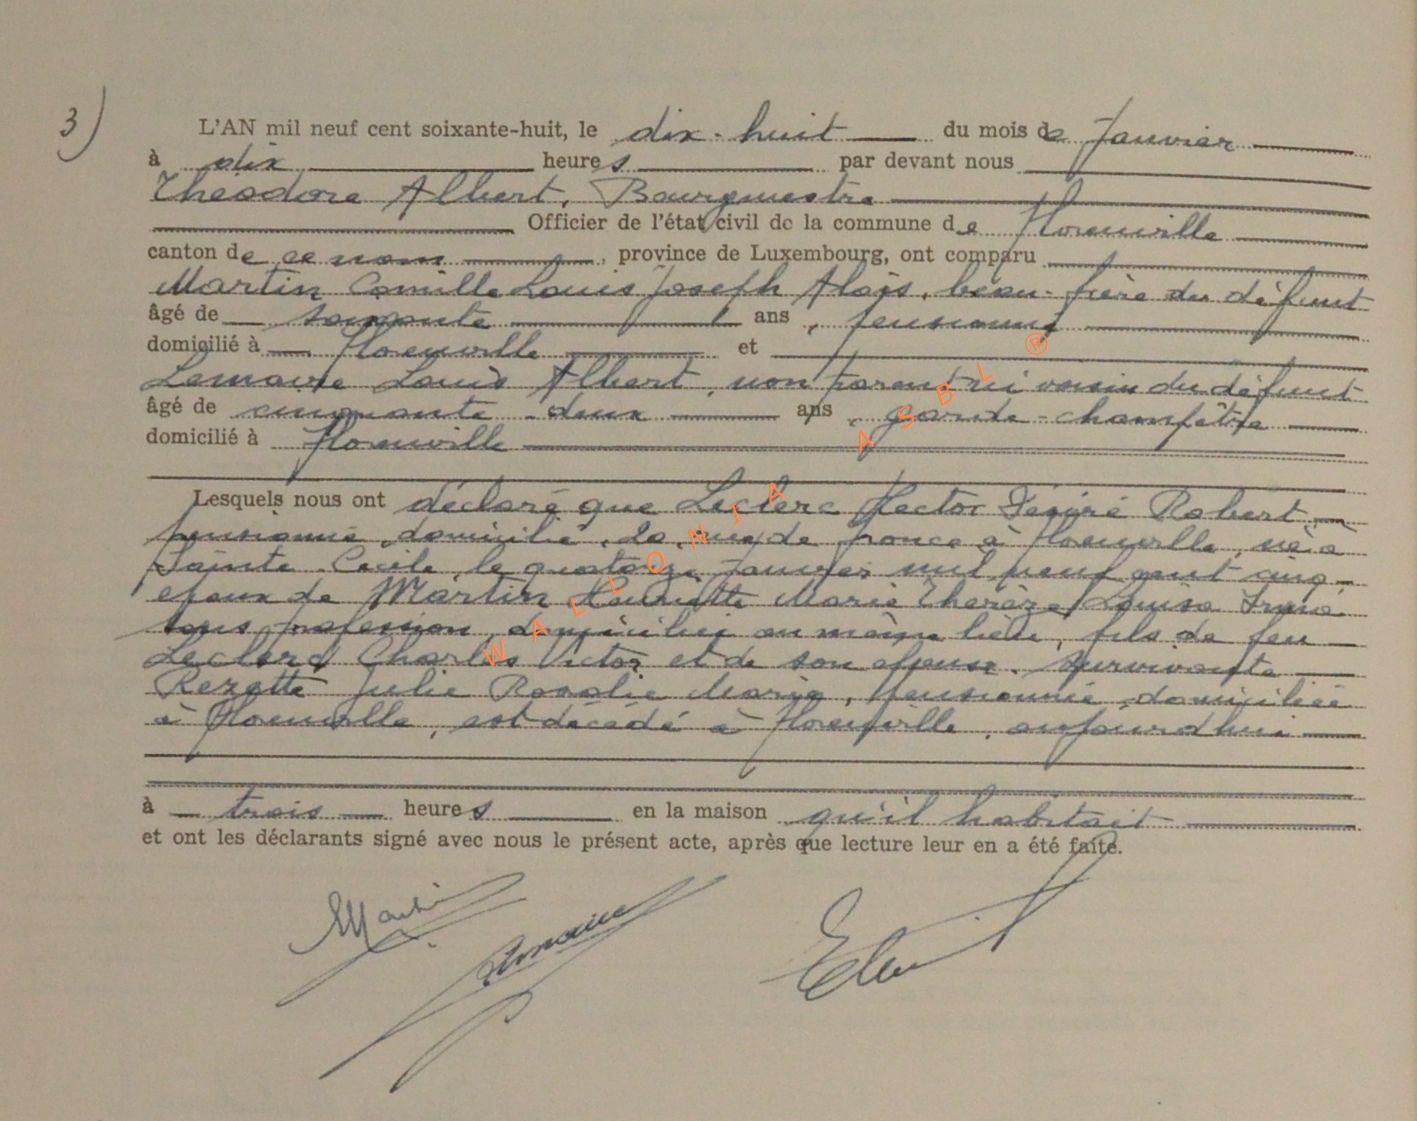 3)
L'AN mil neuf cent soixante-huit, le dix-huit du mois de Janvier
à dix heures par devant nous
Théodore Albert, Bourgmestre
Officier de l'état civil de la commune de Florenville
canton de ce nom, province de Luxembourg, ont comparu
Martin Camille Louis Joseph Aloïs, beau-frère du défunt
âgé de soixante ans, pensionné
domicilié à Florenville et
Lemaire Louis Albert, non parent ni voisin du défunt
âgé de cinquante-deux ans, garde-champêtre
domicilié à Florenville
Lesquels nous ont déclaré que Leclerc Hector Désiré Robert
pensionné, domicilié, 20, rue de France à Florenville, né à
Sainte-Cécile, le quatorze Janvier mil neuf cent cinq
époux de Martin Henriette Marie Thérèze Louisa
sans profession, domiciliée au même lieu, fils de feu
Leclerc Charles Victor et de son épouse survivante
Rezette Julie Rosalie Maria, pensionnée, domiciliée
à Florenville, est décédé à Florenville, aujourd'hui
à trois heures en la maison qu'il habitait
et ont les déclarants signé avec nous le présent acte, après que lecture leur en a été faite.
Martin
Lemaire
WALLONIA ASBL ®